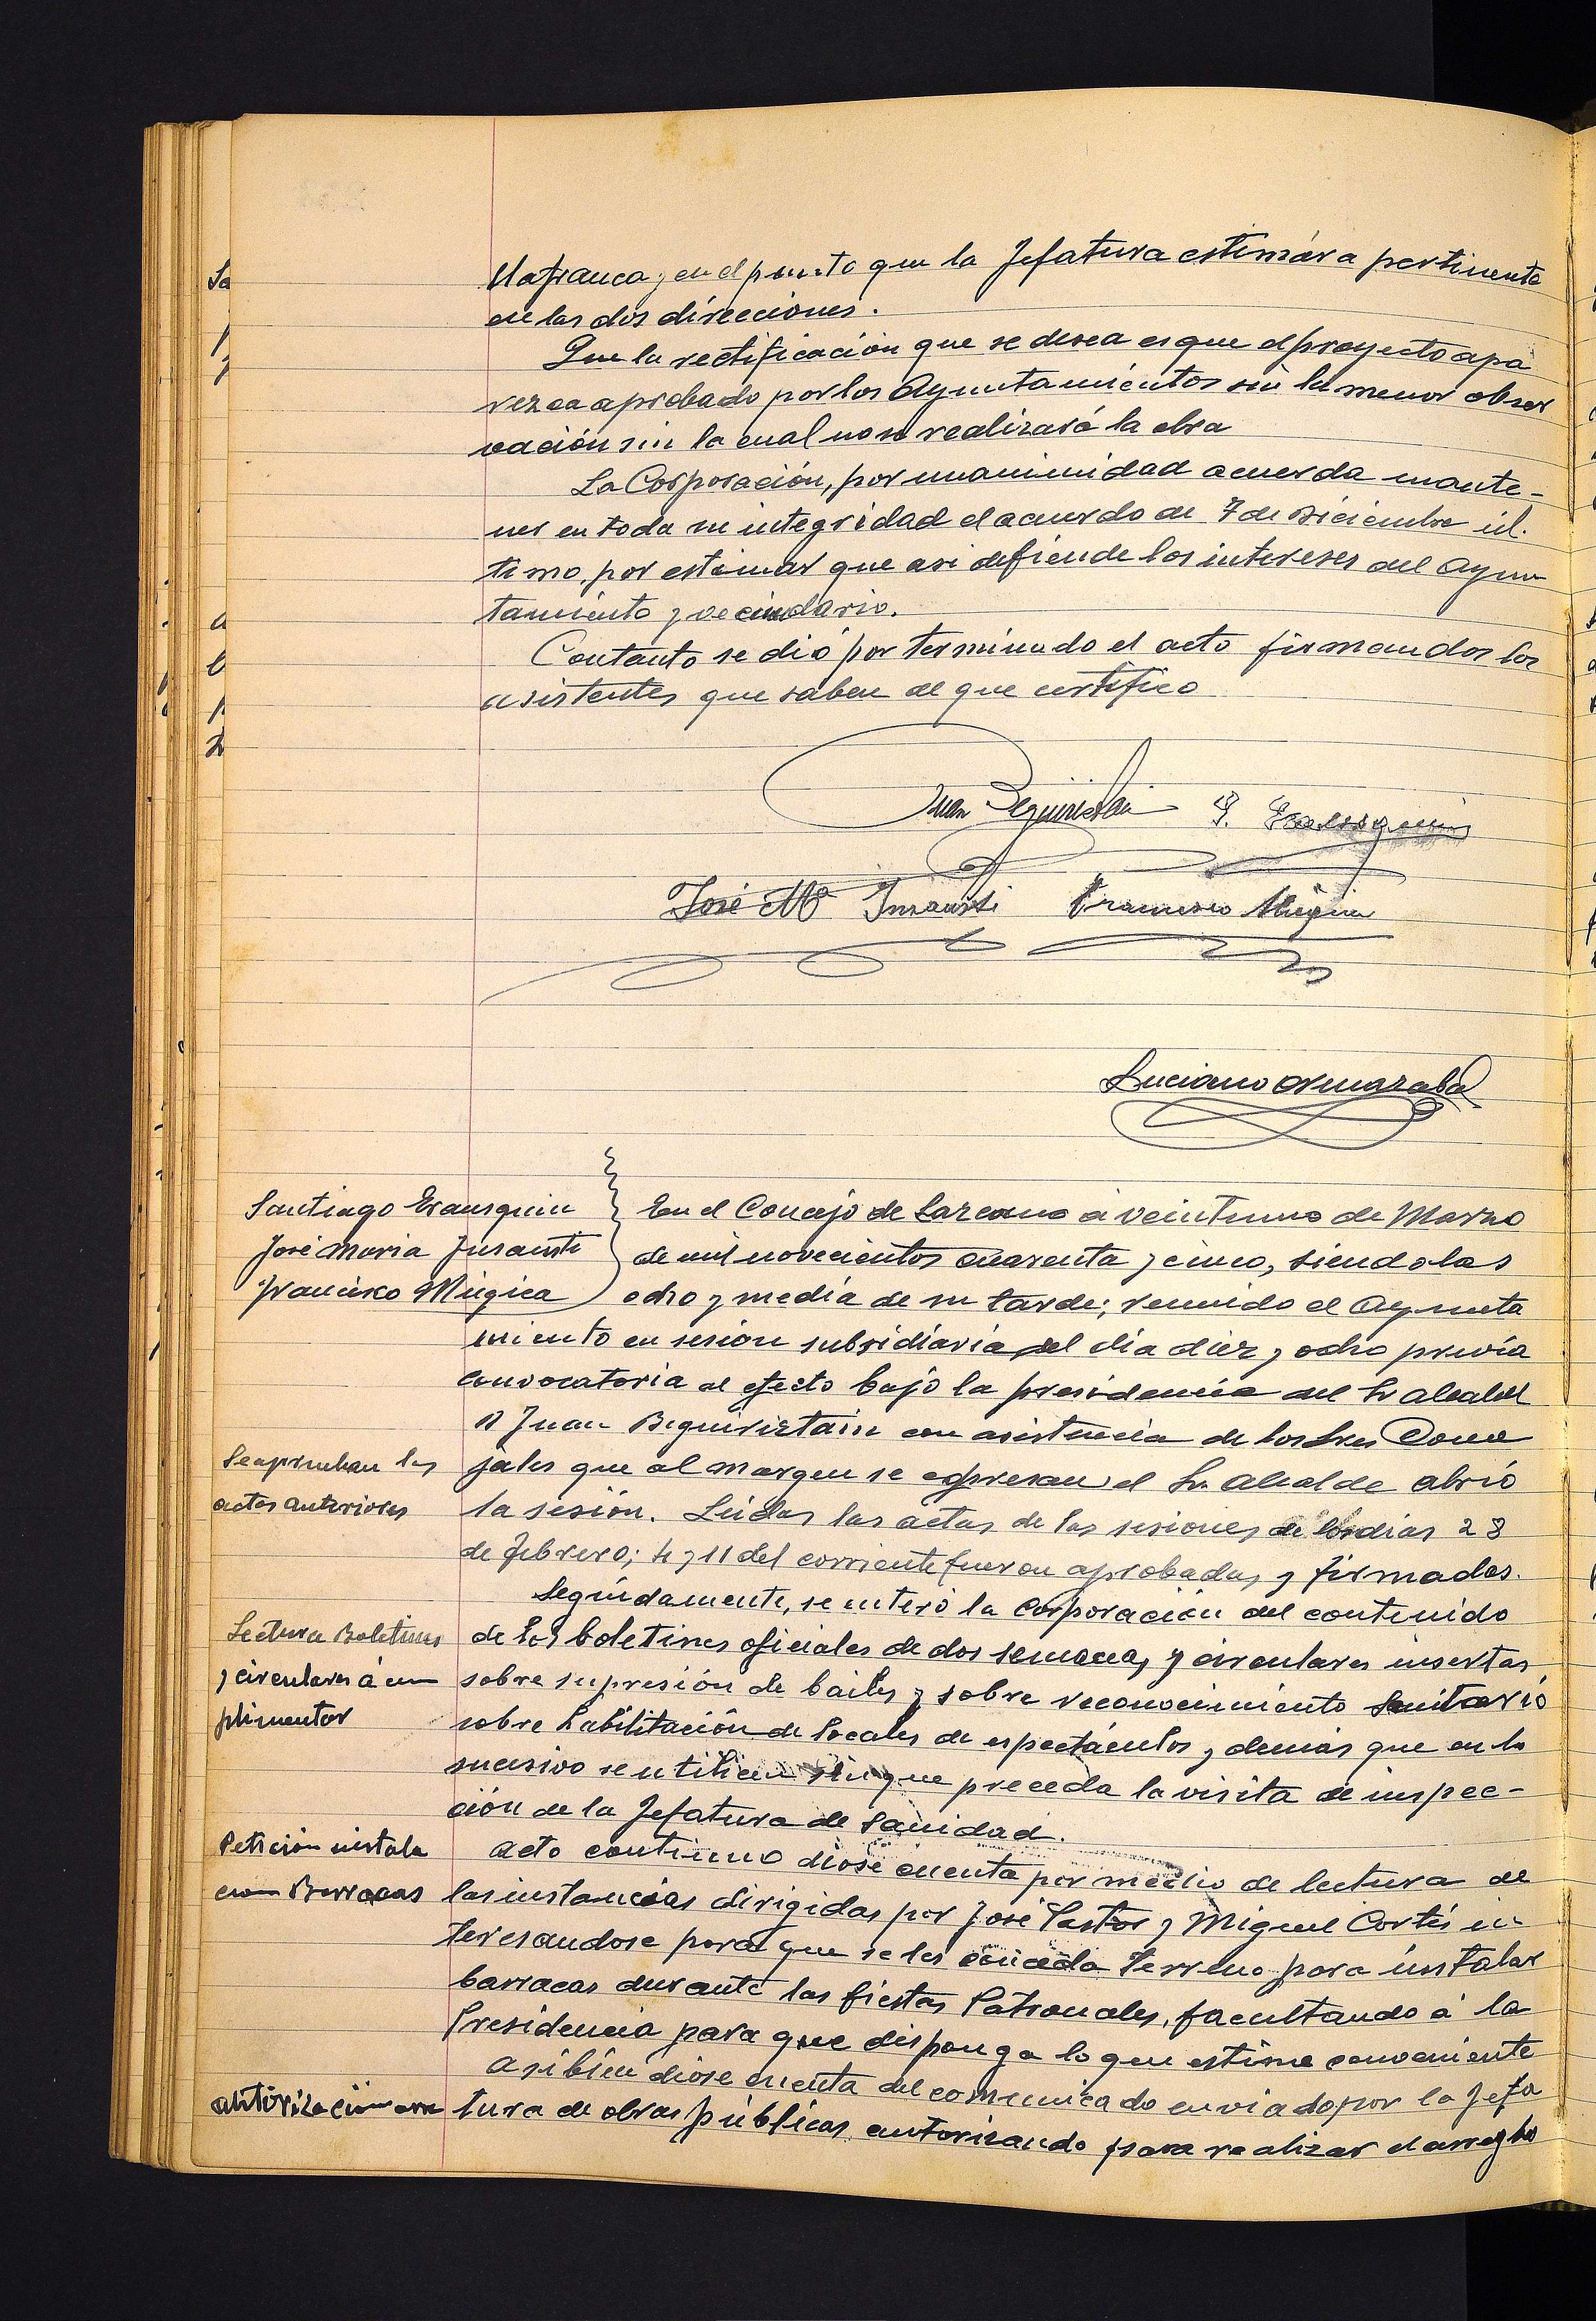 llafranca, en el punto que la Jefatura estimára pertinente
en las dos direcciones.
Que la rectificación que se desea es que el proyecto apa
rezca aprobado por los Ayuntamientos sin la menor obser
vación sin la cual no se realizará la obra
La Corporación, por unanimidad acuerda mante-
ner en toda su integridad el acuerdo de 7 de Diciembre úl.
timo, por estimar que asi defiende los intereses del Ayun
tamiento y vecindario.
Contanto se dió por terminado el acto firmandos los
asistentes que saben de que certifico
Juan Beguiristain S. Erausquin
José Mª Insausti Francisco Múgica
Luciano Ormazabal
Santiago Erausquin
José Maria Insausti
Francisco Múgica
En el Concejo de Lazcano á veintiuno de Marzo
de mil novecientos cuarenta y cinco, siendo las
ocho y media de su tarde; reunido el Ayunta
miento en sesión subsidiaria del dia diez y ocho previa
convocatoria al efecto bajo la presidencia del Sr alcalde
D Juan Beguiristain con asistencia de los Sres Conce
Se aprueban las
actas anteriores
jales que al margen se expresan el Sr. alcalde abrió
la sesión. Leidas las actas de las sesiones de los dias 28
de Febrero; 4 y 11 del corriente fueron aprobadas y firmadas.
Seguidamente, se enteró la Corporación del contenido
Lectura Boletines
y circulares á cum
plimentar
de los boletines oficiales de dos semanas y circulares insertas
sobre supresión de bailes y sobre reconocimiento Sanitario
sobre habilitación de locales de espectáculos y demás que en lo
sucesivo se utilicen sin que preceda la visita de inspec-
ción de la Jefatura de Sanidad.
Petición instala
cion Barracas
acto continuo diose cuenta por medio de lectura de
las instancias dirigidas por José Pastor y Miguel Cortés in
teresandose para que se les conceda terreno para instalar
barracas durante las fiestas Patronales, facultando á la
Presidencia para que disponga lo que estime conveniente
Asibien diose cuenta del comunicado enviado por la Jefa
autorización
tura de obras públicas autorizando para realizar el arreglo